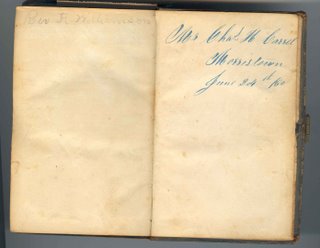 Rev R. Williamson
Mr Chas. H Carril
Morristown
June 24th /60